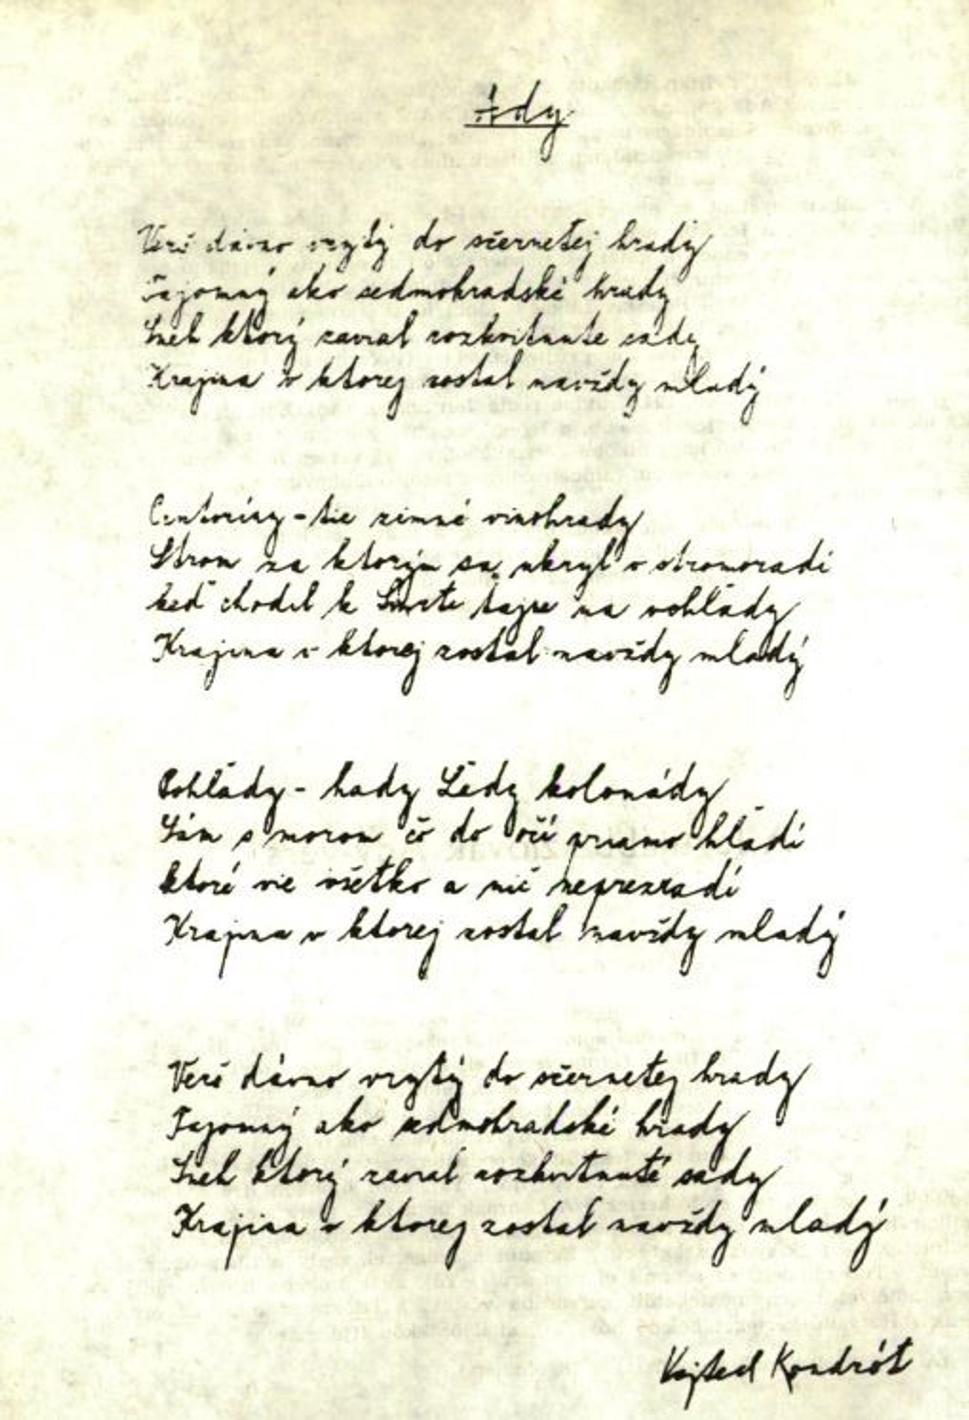 Ády
Verš dávno vrytý do sčernetej hrady
Tajomný ako sedmohradské hrady
Sneh ktorý zavial rozkvitnuté sady
Krajina v ktorej zostal navždy mladý
Cintoríny - tie zimné vinohrady
Strom za ktorým sa ukryl v stromoradí
keď chodil k Smrti tajne na vohľady
Krajina v ktorej zostal navždy mladý
Pohľady - hady Lédy kolonády
Sám s morom čo do očí priamo hľadí
ktoré vie všetko a nič neprezradí
Krajina v ktorej zostal navždy mladý
Verš dávno vrytý do sčernetej hrady
Tajomný ako sedmohradské hrady
Sneh ktorý zavial rozkvitnuté sady
Krajina v ktorej zostal navždy mladý
Vojtech Kondrót